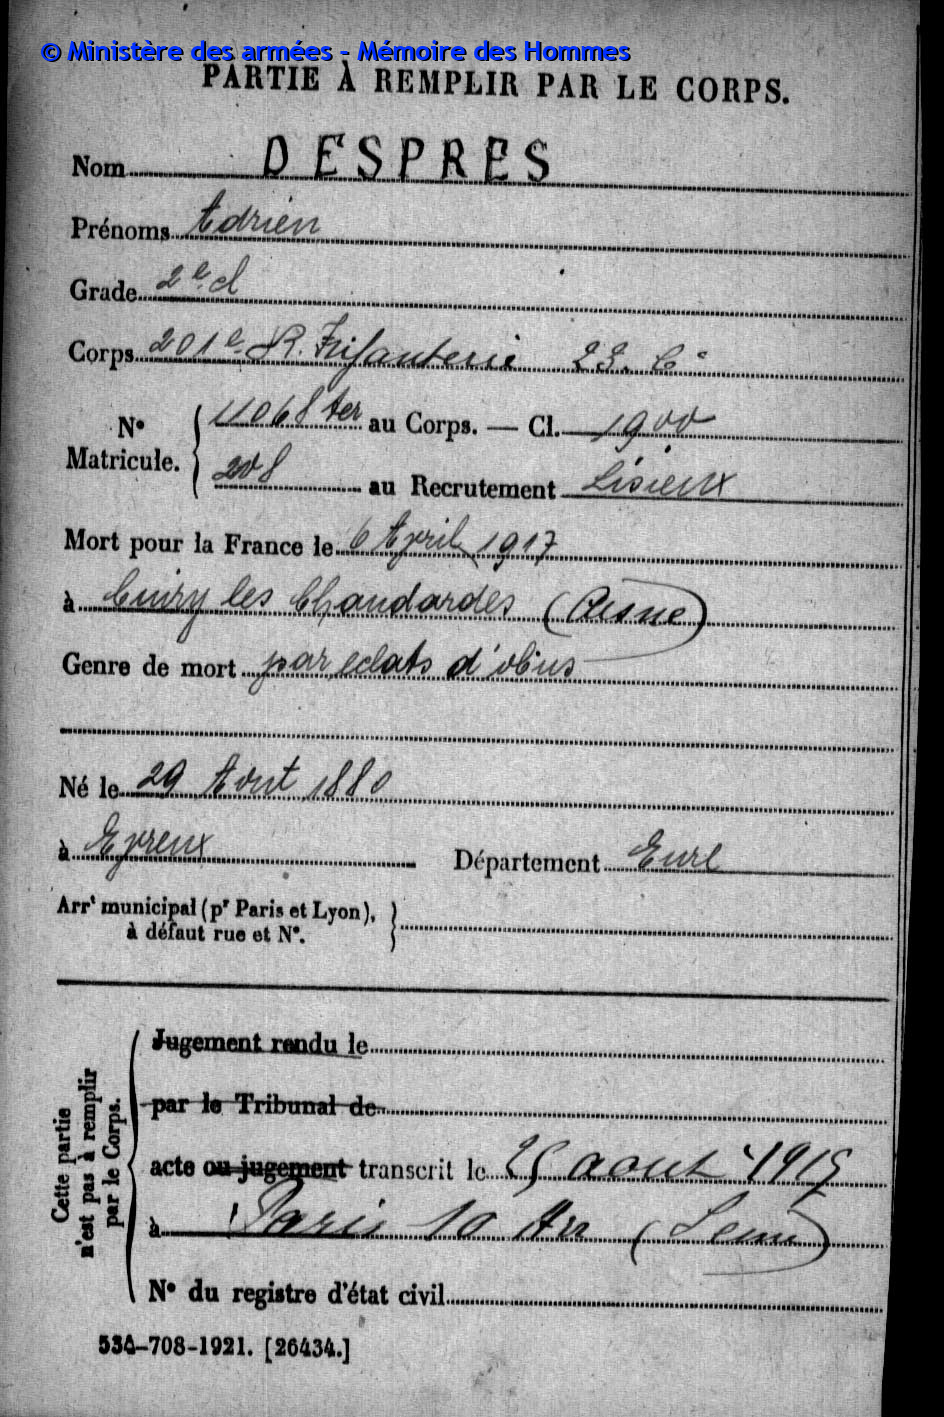 © Ministère des armées - Mémoire des Hommes
PARTIE À REMPLIR PAR LE CORPS.
Nom DESPRES
Prénoms Adrien
Grade 2e cl
Corps 201e R. Infanterie 23. Cie
No Matricule. 11068 ter au Corps. — Cl. 1900
208 au Recrutement Lisieux
Mort pour la France le 6 Avril 1917
à Cuiry les Chaudardes (Aisne)
Genre de mort par eclats d'obus
Né le 29 Aout 1880
à Evreux Département Eure
Arrt municipal (pr Paris et Lyon),
à défaut rue et No.
Cette partie
n'est pas à remplir
par le Corps.
Jugement rendu le
par le Tribunal de
acte ou jugement transcrit le 25 aout 1919
à Paris 10 Arr (Seine)
No du registre d'état civil
534-708-1921. [26434.]